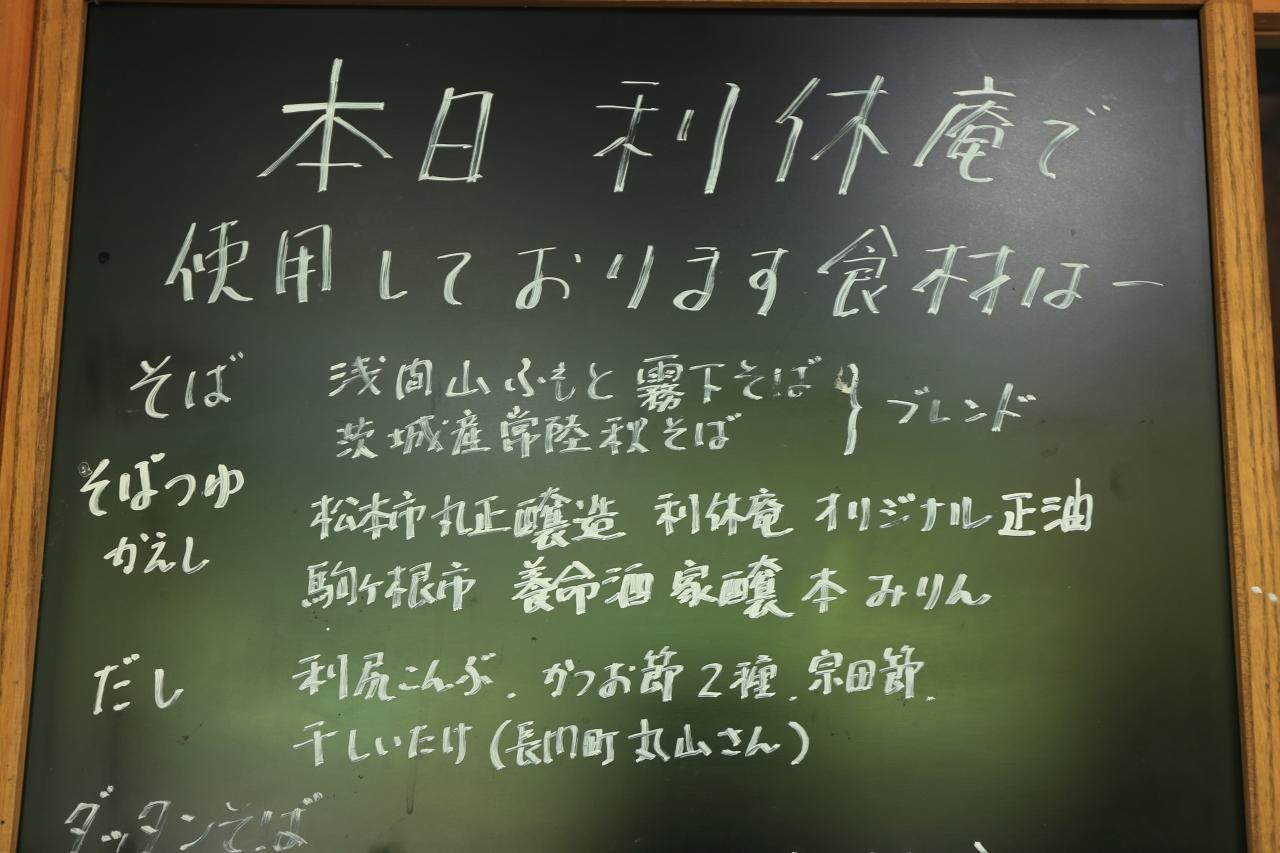 本日 利休庵で
使用しております食材はー
そば 浅間山ふもと 霧下そば
茨城産常陸秋そば } ブレンド
そばつゆ
かえし
松本市丸正醸造 利休庵 オリジナル正油
駒ヶ根市 養命酒 家醸本みりん
だし 利尻こんぶ、かつお節2種、宗田節、
干しいたけ(長川町丸山さん)
ダッタンそば